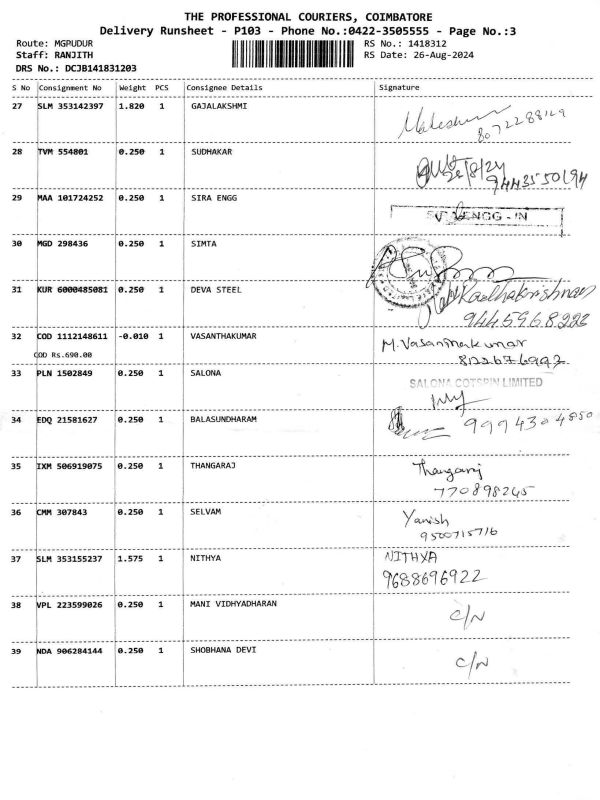 THE PROFESSIONAL COURIERS, COIMBATORE
Delivery Runsheet - P103 - Phone No.:0422-3505555 - Page No.:3
Route: MGPUDUR RS No.: 1418312
Staff: RANJITH RS Date: 26-Aug-2024
DRS No.: DCJB141831203
S No Consignment No Weight PCS Consignee Details Signature
27 SLM 353142397 1.820 1 GAJALAKSHMI
8072288129
28 TVM 554801 0.250 1 SUDHAKAR
26/8/24
9443550194
29 MAA 101724252 0.250 1 SIRA ENGG
ENGG - IN
30 MGD 298436 0.250 1 SIMTA
31 KUR 6000485081 0.250 1 DEVA STEEL Radhakrishnan
9445968223
32 COD 1112148611 -0.010 1 VASANTHAKUMAR M. Vasanthakumar
COD Rs.690.00 8122676992
33 PLN 1502849 0.250 1 SALONA SALONA COTSPIN LIMITED
34 EDQ 21581627 0.250 1 BALASUNDHARAM 9994304850
35 IXM 506919075 0.250 1 THANGARAJ Thangaraj
770898245
36 CMM 307843 0.250 1 SELVAM Yanish
9500715716
37 SLM 353155237 1.575 1 NITHYA NITHYA
9688696922
38 VPL 223599026 0.250 1 MANI VIDHYADHARAN C/N
39 NDA 906284144 0.250 1 SHOBHANA DEVI C/N